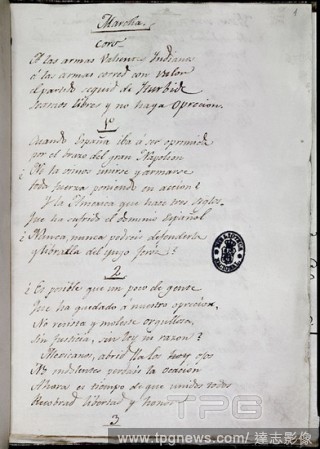 Marcha.
Coro
A las armas Valientes Indianos
a las armas corred con valor
el partido seguid de Iturbide
seamos libres y no haya Opresion.
1º
Cuando España iba á ser oprimida
por el brazo del gran Napoleon
¿No la vimos unirse y armarse
toda fuerza poniendo en accion?
Y la America que hace tres siglos
Que ha sufrido el dominio Español
¿Nunca, nunca podrá defenderla
y librarla del yugo feroz?
2
¿Es posible que un poco de gente
Que ha quedado á nuestra
No renueva y moleste orgullosa,
Sin justicia, sin ley ni razon?
Mexicanos, abrid ya los ojos
No indolentes perdais la ocasion
Ahora es tiempo de que unidos todos
Recobrad libertad y honor
3
TPG
www.tpgnews.com/達志影像